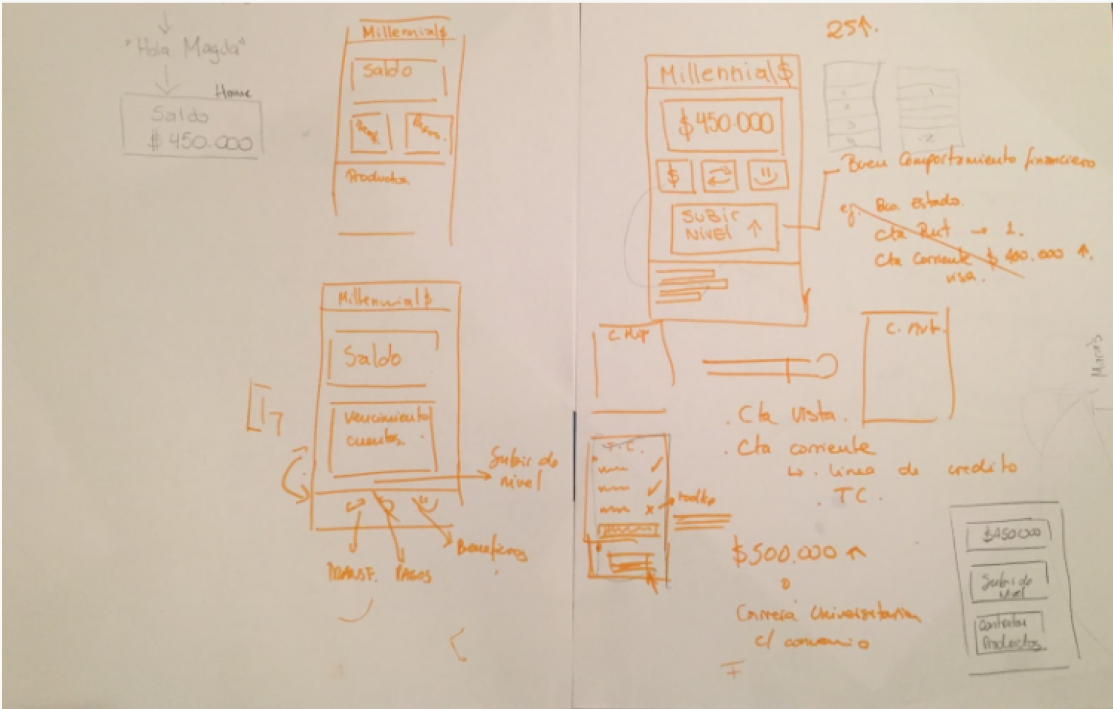 "Hola Magda"
Home
Saldo
$ 450.000
Millennial$
Saldo
Productos
Millennial$
Saldo
Vencimiento
cuentas.
Subir de
nivel
TRANSF.
PAGOS
Beneficios
25↑.
Millennial$
$450.000
$
SUBIR
NIVEL ↑
Buen comportamiento financiero
ej. Bco Estado.
Cta Rut → 1.
Cta Corriente $ 400.000 ↑.
visa.
C. Aut.
. Cta Vista.
. Cta corriente
↳ . linea de credito
. TC.
T.C.
✓
✓
x
$500.000 ↑
o
Carrera Universitaria
c/ convenio
$450000
Subir de
Nivel
Contratar
Productos